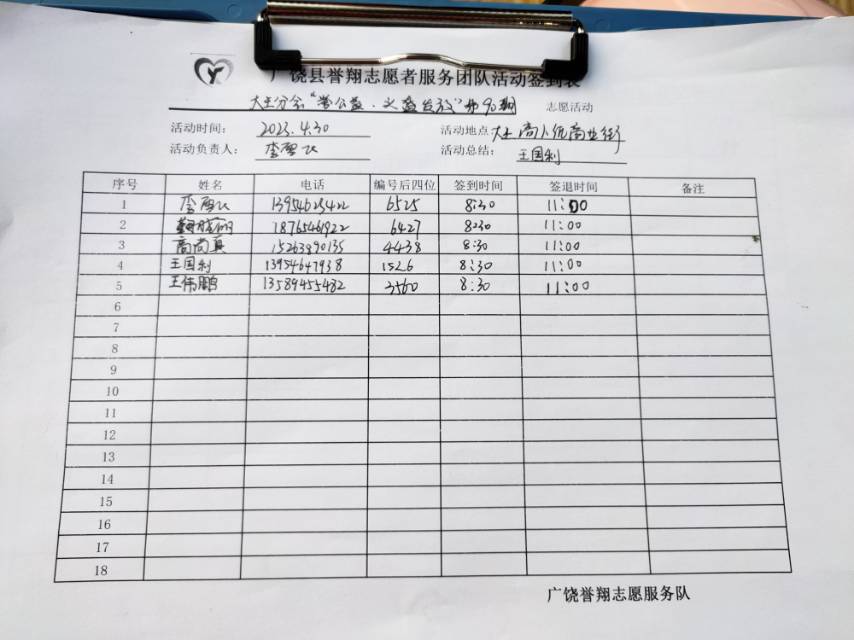 广饶县誉翔志愿者服务团队活动签到表
大王分会"誉公益·义盖发放"第90期 志愿活动
活动时间: 2023.4.30 活动地点: 大王商业街
活动负责人: 李 活动总结: 王国利
序号 姓名 电话 编号后四位 签到时间 签退时间 备注
1 李 13954623422 6525 8:30 11:00
2 18765461922 6427 8:30 11:00
3 高尚真 15263890135 4438 8:30 11:00
4 王国利 13954647938 1526 8:30 11:00
5 王伟鹏 13589455482 3560 8:30 11:00
6
7
8
9
10
11
12
13
14
15
16
17
18
广饶誉翔志愿服务队